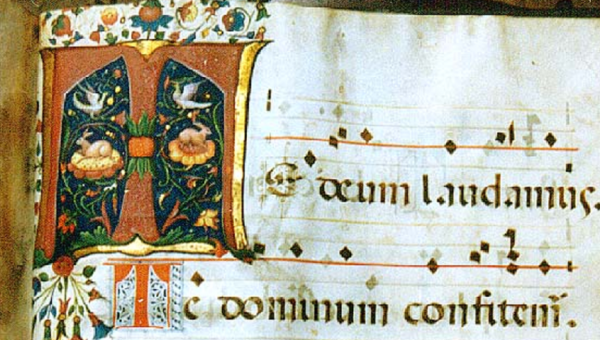 TE deum laudamus.
Te dominum confitem̃.